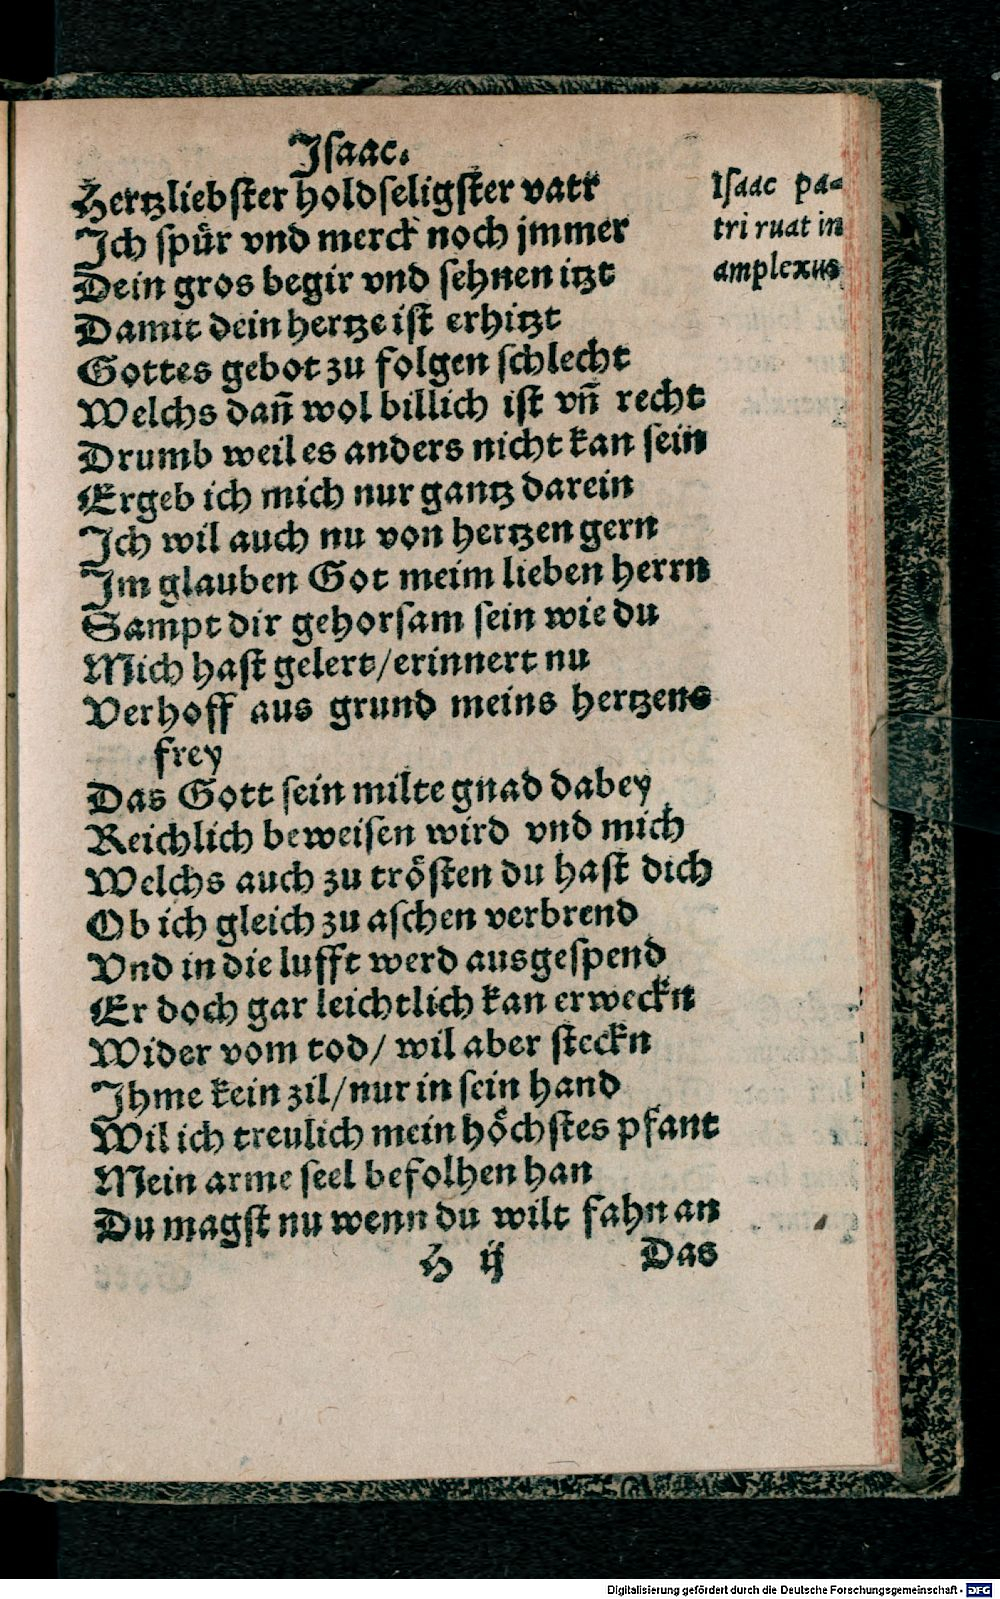 Isaac.
Hertzliebster holdseligster vatr
Ich spür vnd merck noch jmmer
Dein gros begir vnd sehnen itzt
Damit dein hertze ist erhitzt
Gottes gebot zu folgen schlecht
Welchs dañ wol billich ist vñ recht
Drumb weil es anders nicht kan sein
Ergeb ich mich nur gantz darein
Ich wil auch nu von hertzen gern
Im glauben Got meim lieben herrn
Sampt dir gehorsam sein wie du
Mich hast gelert/erinnert nu
Verhoff aus grund meins hertzens
frey
Das Gott sein milte gnad dabey
Reichlich beweisen wird vnd mich
Welchs auch zu trösten du hast dich
Ob ich gleich zu aschen verbrend
Vnd in die lufft werd ausgespend
Er doch gar leichtlich kan erweckn
Wider vom tod/ wil aber steckn
Ihme kein zil/nur in sein hand
Wil ich treulich mein höchstes pfant
Mein arme seel befolhen han
Du magst nu wenn du wilt fahn an
H ij Das
Isaac pa-
tri ruat in
amplexus
Digitalisierung gefördert durch die Deutsche Forschungsgemeinschaft - DFG